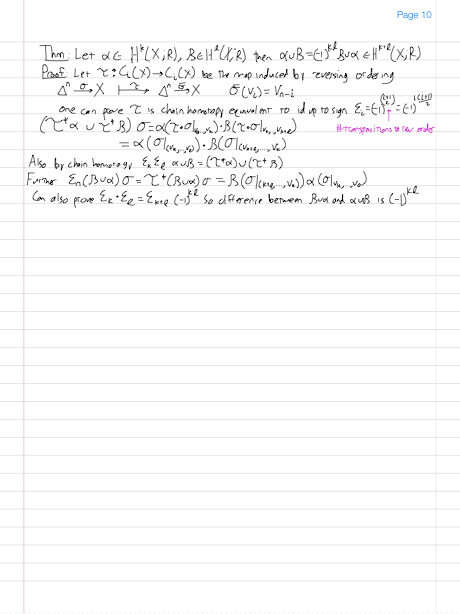 Page 10
Thm: Let α ∈ H^k(X;R), β ∈ H^l(X;R) then α∪β = (-1)^{kl} β∪α ∈ H^{k+l}(X;R)
Proof: Let τ: C_i(X) → C_i(X) be the map induced by reversing ordering
Δ^n σ→ X ↦ Δ^n σ̄→ X σ̄(v_i) = v_{n-i}
one can prove τ is chain homotopy equivalent to id up to sign ε_i = (-1)^{(i+1 2)} = (-1)^{i(i+1)/2}
# transpositions to rev order
(τ*α ∪ τ*β) σ = α(τ∘σ|_{v_0,…,v_k}) · β(τ∘σ|_{v_k,…,v_{k+l}})
= α(σ|_{(v_k,…,v_0)}) · β(σ|_{(v_{k+l},…,v_k)})
Also by chain homotopy ε_k ε_l α∪β = (τ*α) ∪ (τ*β)
Further ε_n(β∪α)σ = τ*(β∪α)σ = β(σ|_{(k+l,…,v_k)}) α(σ|_{v_k,…,v_0})
Can also prove ε_k · ε_l = ε_{k+l} (-1)^{kl} so difference between β∪α and α∪β is (-1)^{kl}